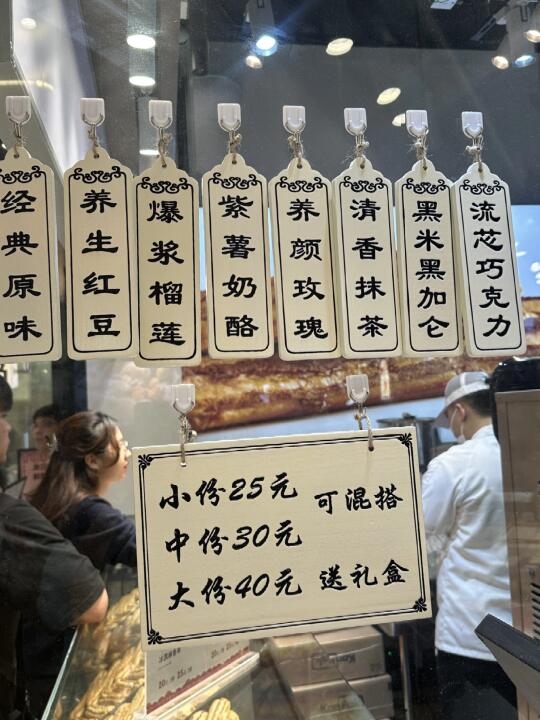 经典原味
养生红豆
爆浆榴莲
紫薯奶酪
养颜玫瑰
清香抹茶
黑米黑加仑
流芯巧克力
小份25元 可混搭
中份30元
大份40元 送礼盒